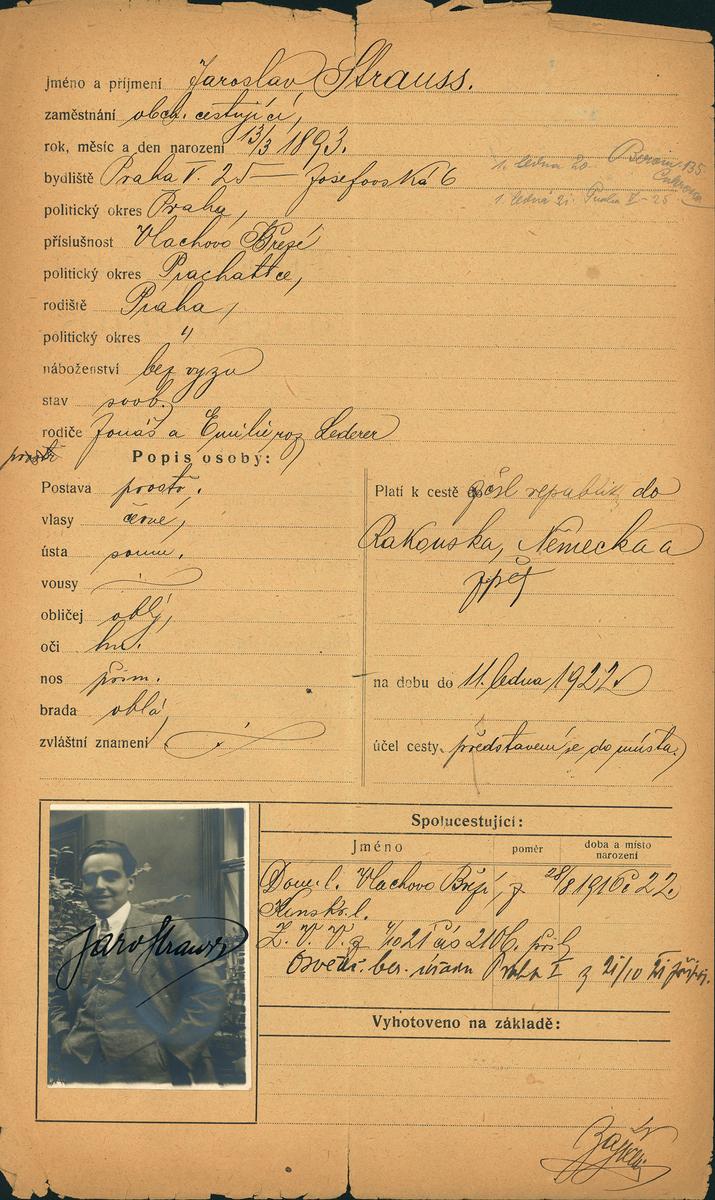 jméno a příjmení Jaroslav Strauss.
zaměstnání obch. cestující,
rok, měsíc a den narození 13/3 1893.
bydliště Praha V. 25 — Josefovská 6
1. ledna 20. Beroun 135
1. ledna 21. Praha V - 25
politický okres Praha,
příslušnost Vlachovo Březí
politický okres Prachatice,
rodiště Praha,
politický okres "
náboženství bez vyzn
stav svob.
rodiče Jonáš a Emilie roz Lederer
Popis osoby:
Postava prostř.
vlasy černé,
ústa soum.
vousy
obličej oblý,
oči hn.
nos přim.
brada oblá,
zvláštní znamení
Platí k cestě do čsl republik do
Rakouska, Německa a
zpět
na dobu do 11. ledna 1922
účel cesty představení se do místa
Spolucestující:
Jméno
poměr
doba a místo
narození
Dom. l. Vlachovo Březí, z 28/8 1916 č 22.
Z. V. V. z 4/10 21 čís 2106.
Osvěd. ber. úřadu Praha I z 21/10 21
Jaro Strauss
Vyhotoveno na základě: